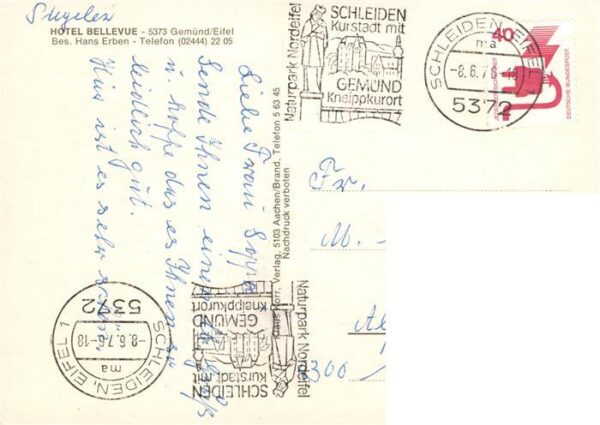 HOTEL BELLEVUE - 5373 Gemünd/Eifel
Bes. Hans Erben - Telefon (02444) 22 05
Liebe Frau
Sende Ihnen einen
u. hoffe das es Ihnen
gut.
Hier ist es sehr
claus Korr. Verlag, 5103 Aachen/Brand, Telefon 5 63 45
Nachdruck verboten
Naturpark Nordeifel
SCHLEIDEN
Kurstadt mit
GEMÜND
Kneippkurort
SCHLEIDEN, EIFEL
ma
5372
40
DEUTSCHE BUNDESPOST
Fr.
M.
300
Naturpark Nordeifel
SCHLEIDEN
Kurstadt mit
GEMÜND
Kneippkurort
SCHLEIDEN, EIFEL 1
ma
-8.6.76-18
5372